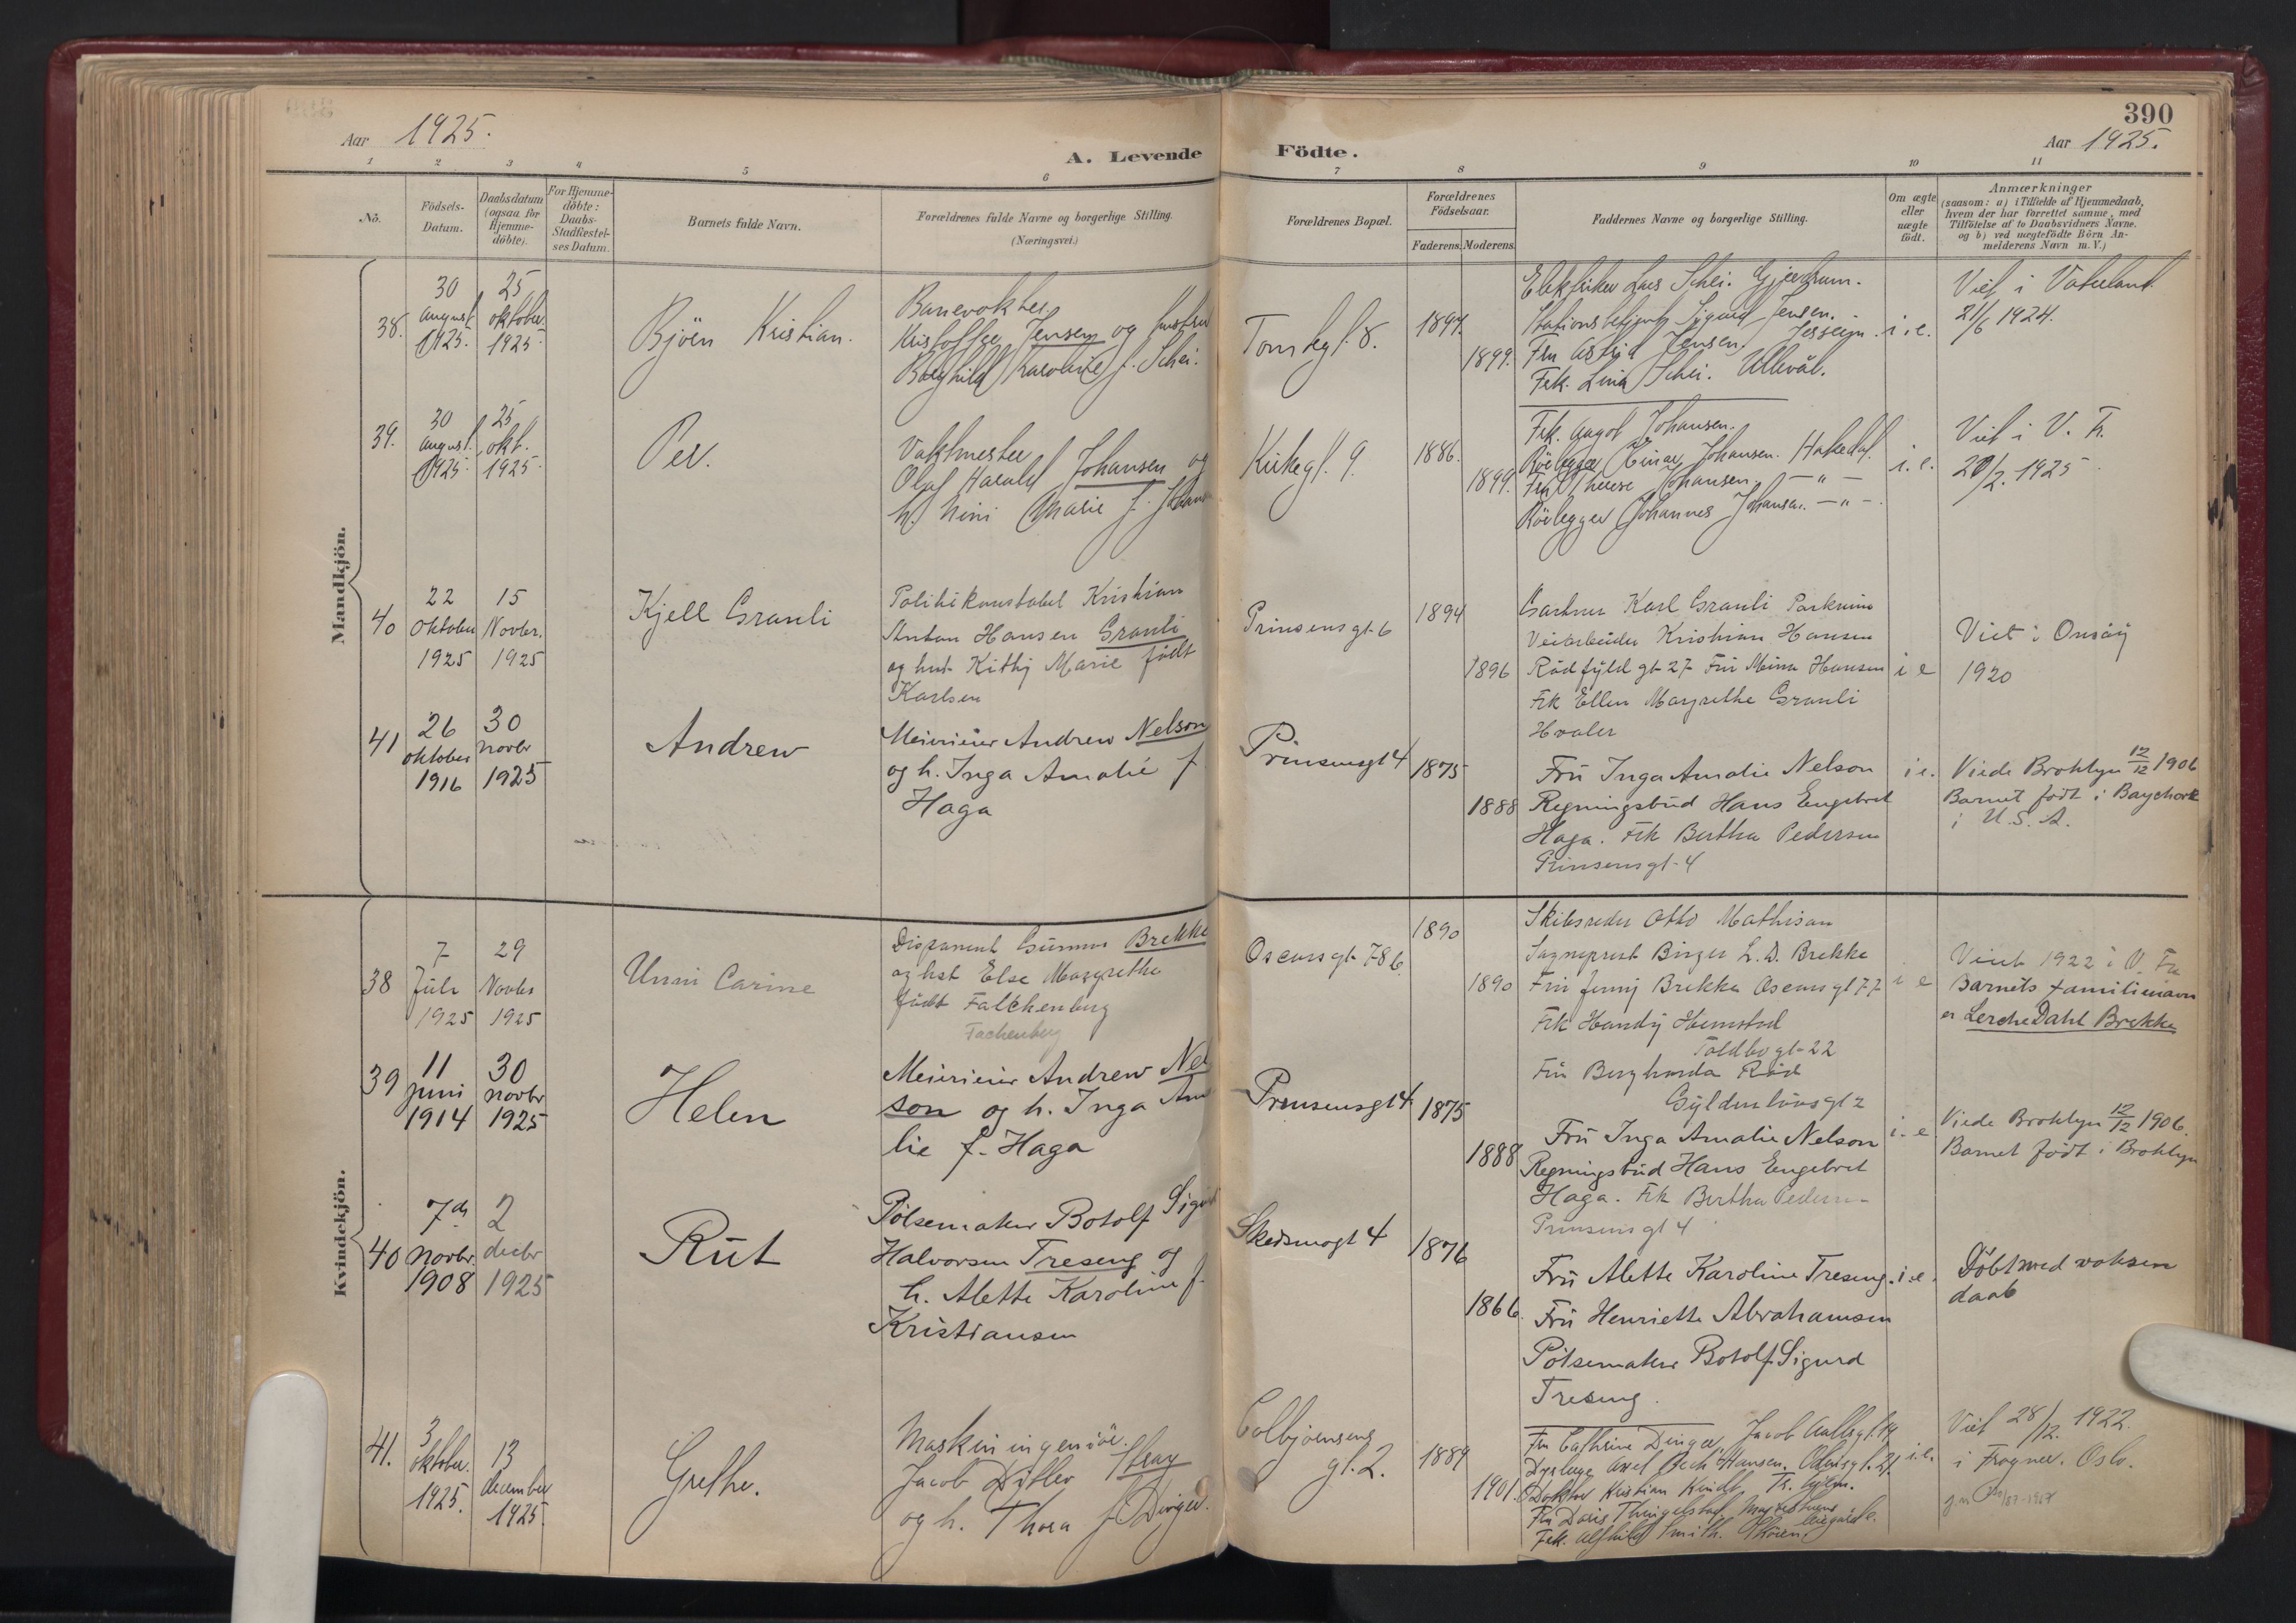 390
Aar 1925.
A. Levende Födte.
Aar 1925.
1 2 3 4 5 6 7 8 9 10 11
No.
Födsels-
Datum.
Daabsdatum
(ogsaa for
Hjemme-
döbte).
For Hjemme-
döbte:
Daabs-
Stadfæstel-
ses Datum.
Barnets fulde Navn.
Forældrenes fulde Navne og borgerlige Stilling.
(Næringsvei.)
Forældrenes Bopæl.
Forældrenes
Födselsaar.
Faderens. Moderens.
Faddernes Navne og borgerlige Stilling.
Om ægte
eller
uægte
födt.
Anmærkninger
(saasom: a) i Tilfælde af Hjemmedaab,
hvem der har forrettet samme, med
Tilföielse af to Daabsvidners Navne.
og b) ved uægtefödte Börn An-
melderens Navn m. V.)
Mandkjön.
38.
30
august
1925.
25
oktober
1925
Björn Kristian.
Banevokter
Kristoffer Jensen og hustru
Borghild Karoline f. Schei.
Tomtegt. 8.
1897.
1899.
Elektriker Lars Schei. Gjerdrum.
Stationsbetjent Sigurd Jensen.
Fru Astrid Jensen. Jessheim.
Frk. Lina Schei. Ullevål.
i. e.
Viet i Vaterland
21/6 1924.
39.
30
august.
1925.
25
okt.
1925
Per.
Vaktmester
Olaf Harald Johansen og
h. Nini Marie f. Johansen
Kirkegt. 9.
1886.
1899.
Frk. Johansen.
Rörlegger Einar Johansen. Hakedal.
Fru Therese Johansen — " —
Rörlegger Johannes Johansen. — " —.
i. e.
Viet i V. Fr.
20/2. 1925
40
22
oktober
1925
15
Novbr.
1925
Kjell Granli
Politikonstabel Kristian
Anton Hansen Granli
og hust. Kitty Marie födt
Karlsen
Prinsensgt. 6
1894
1896
Gartner Karl Granli
Veiarbeider Kristian Hansen
Rödfyldgt 27 Fru Mina Hansen
Frk Ellen Margrethe Granli
Hvaler
i e
Viet i Onsöy
1920
41
26
oktober
1916
30
novbr
1925
Andrew
Meierieier Andrew Nelson
og h. Inga Amalie f.
Haga
Prinsensgt 4
1875
1888
Fru Inga Amalie Nelson
Regningsbud Hans Engebret
Haga. Frk Bertha Pedersen
Prinsensgt-4
i e.
Viede Broklyn 12/12 1906
Barnet født i
i U. S. A.
Kvindekjön.
38
7
Juli
1925
29
Novbr
1925
Unni Carine
Disponent Gunnar Brekke
og hst Else Margrethe
født Falchenberg
Fachenberg
Oscarsgt. 78 b
1890
1890
Skibsreder Otto Mathisen
Sogneprest Birger L. D. Brekke
Fru Jenny Brekke Oscarsgt 77
Frk
Toldbogt-22
Fru
Gyldenløvsgt 2
i e
Viet 1922 i V. Fr
Barnets familienavn
er Lerche Dahl Brekke
39
11
juni
1914
30
novbr
1925
Helen
Meierieier Andrew Nel
son og h. Inga Ama
lie f. Haga
Prinsensgt 4
1875
1888
Fru Inga Amalie Nelson
Regningsbud Hans Engebret
Haga. Frk Bertha Pedersen
Prinsensgt 4
i. e
Viede Broklyn 12/12 1906.
Barnet født i Broklyn
40
7de
novbr.
1908
2
decbr
1925
Rut
Pølsemaker Botolf Sigurd
Halvorsen Treseng og
h. Alette Karoline f.
Kristiansen
Skedsmogt 4
1876
1866.
Fru Alette Karoline Treseng.
Fru Henriette Abrahamsen
Pølsemaker Botolf Sigurd
Treseng.
i. e.
Døbt med voksen
daab
41.
3
oktober.
1925.
13
december
1925.
Grethe.
Maskiningeniör.
Jacob Ditlev Stray
og h. Thora f. Dinger.
Colbjörnsens
gt. 2.
1889
1901.
Fru Cathrine Dinger Jacob Aallsgt. 14
Axel Hansen.
Doktor Kristian Kindt
Fru Doris
Frk. Alfhild Smith. Skien.
i. e.
Viet 28/12. 1922.
i Frogner. Oslo.